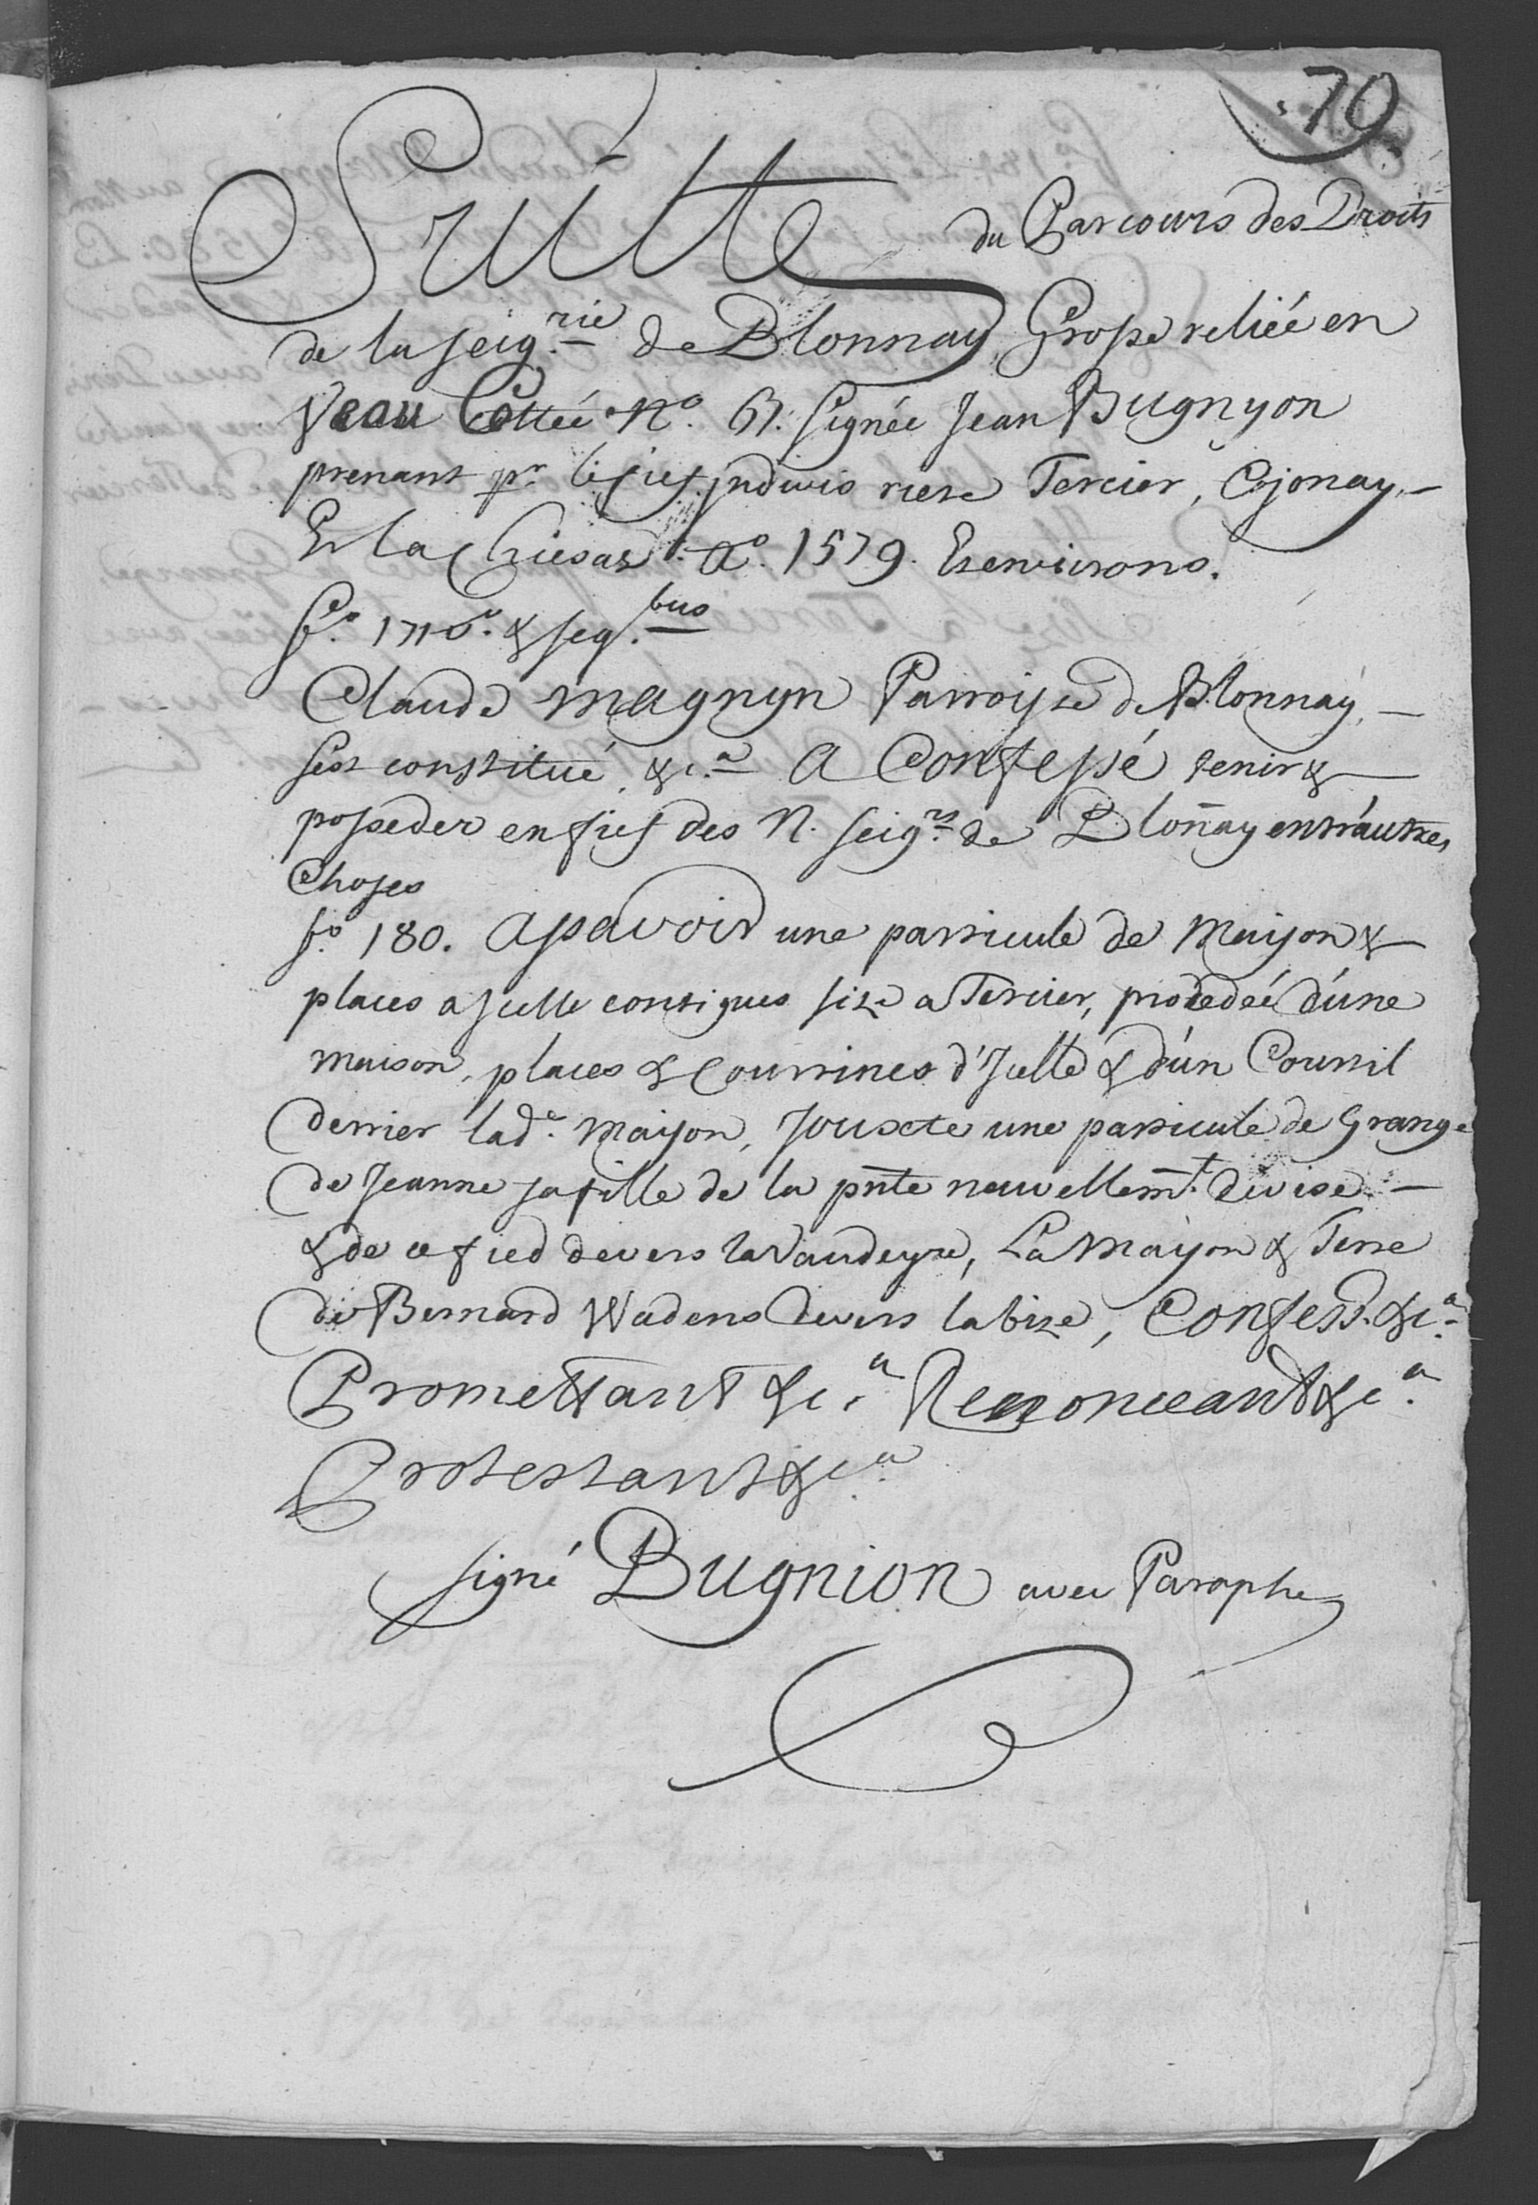 70
Suitte du Parcours des Droits
de la seig.rie de Blonnay, Grosse reliée en
veau Cottée N.o 61. signée Jean Bugnyon
prenant p.r le fief jndivis riere Tercier, Cojonay,
Et la Chiesaz. A.o 1579. Et environs.
f.o & seq.bus
Claude Magnyn Parroisse de Blonnay,
s'est constitué, &c.a A Confessé tenir &
posseder en fief des N. seig.rs de Blon̄ay entr'autres
Choses
f.o 180. Assavoir une particule de Maison &
places a jcelle contigues size a Tercier, procedée d'une
maison, places & Courtines d'Jcelle & d'un Courtil
derrier lad.e Maison, Jouxte une particule de Grange
de Jeanne sa fille de la pnte nouvellem.t divise
& de ce fied devers la Vaudeyre, La Maison & Terre
de Bernard Wadens devers la bize, Confess. &c.a
Promettant &c.a Renonceant &c.a
Protestant &c.a
signé Bugnion avec Paraphe